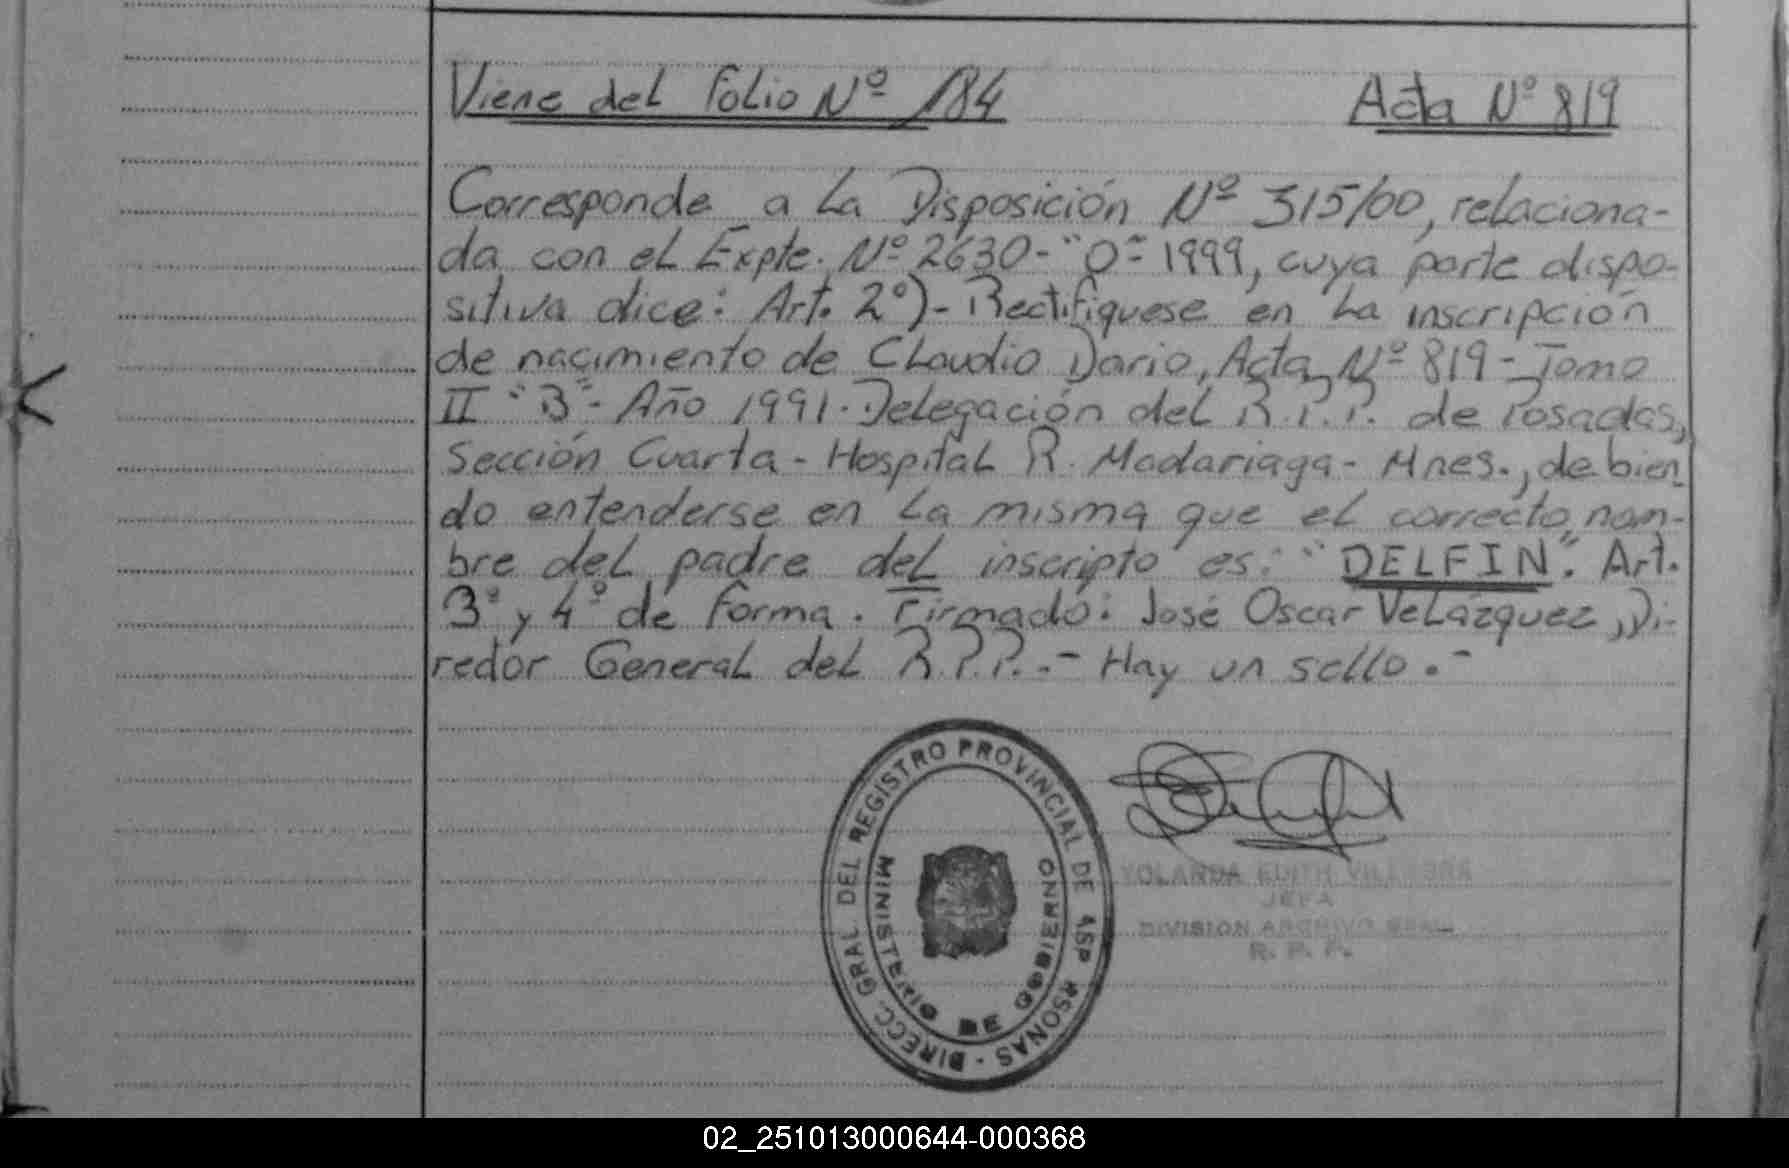 Viene del folio Nº 184
Acta Nº 819
Corresponde a la Disposición Nº 315/00, relaciona-
da con el Expte. Nº 2630-"O"-1999, cuya parte dispo-
sitiva dice: Art. 2º)- Rectifíquese en la inscripción
de nacimiento de Claudio Dario, Acta Nº 819 - Tomo
II "B"- Año 1991. Delegación del R.P.P. de Posadas,
Sección Cuarta - Hospital R. Madariaga - Mnes., debien-
do entenderse en la misma que el correcto nom-
bre del padre del inscripto es: "DELFIN". Art.
3º y 4º de forma. Firmado: José Oscar Velázquez, Di-
rector General del R.P.P..- Hay un sello.-
DIRECC. GRAL DEL REGISTRO PROVINCIAL DE
MINISTERIO DE GOBIERNO
YOLANDA EDITH
JEFA
DIVISION ARCHIVO GRAL.
R. P. P.
02_251013000644-000368